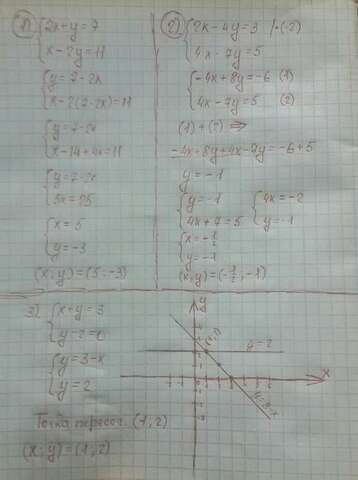 1) { 2x+y=7
x-2y=11
{ y=7-2x
x-2(7-2x)=11
{ y=7-2x
x-14+4x=11
{ y=7-2x
5x=25
{ x=5
y=-3
(x;y)=(5;-3)
2) { 2x-4y=3 |·(-2)
4x-7y=5
{ -4x+8y=-6 (1)
4x-7y=5 (2)
(1)+(2) ⇒
-4x+8y+4x-7y=-6+5
y=-1
{ y=-1
4x+7=5
{ 4x=-2
y=-1
{ x=-1/2
y=-1
(x;y)=(-1/2;-1)
3) { x+y=3
y-2=0
{ y=3-x
y=2
Точка пересеч. (1;2)
(x;y)=(1;2)
y
(1;2)
y=2
x
y=3-x